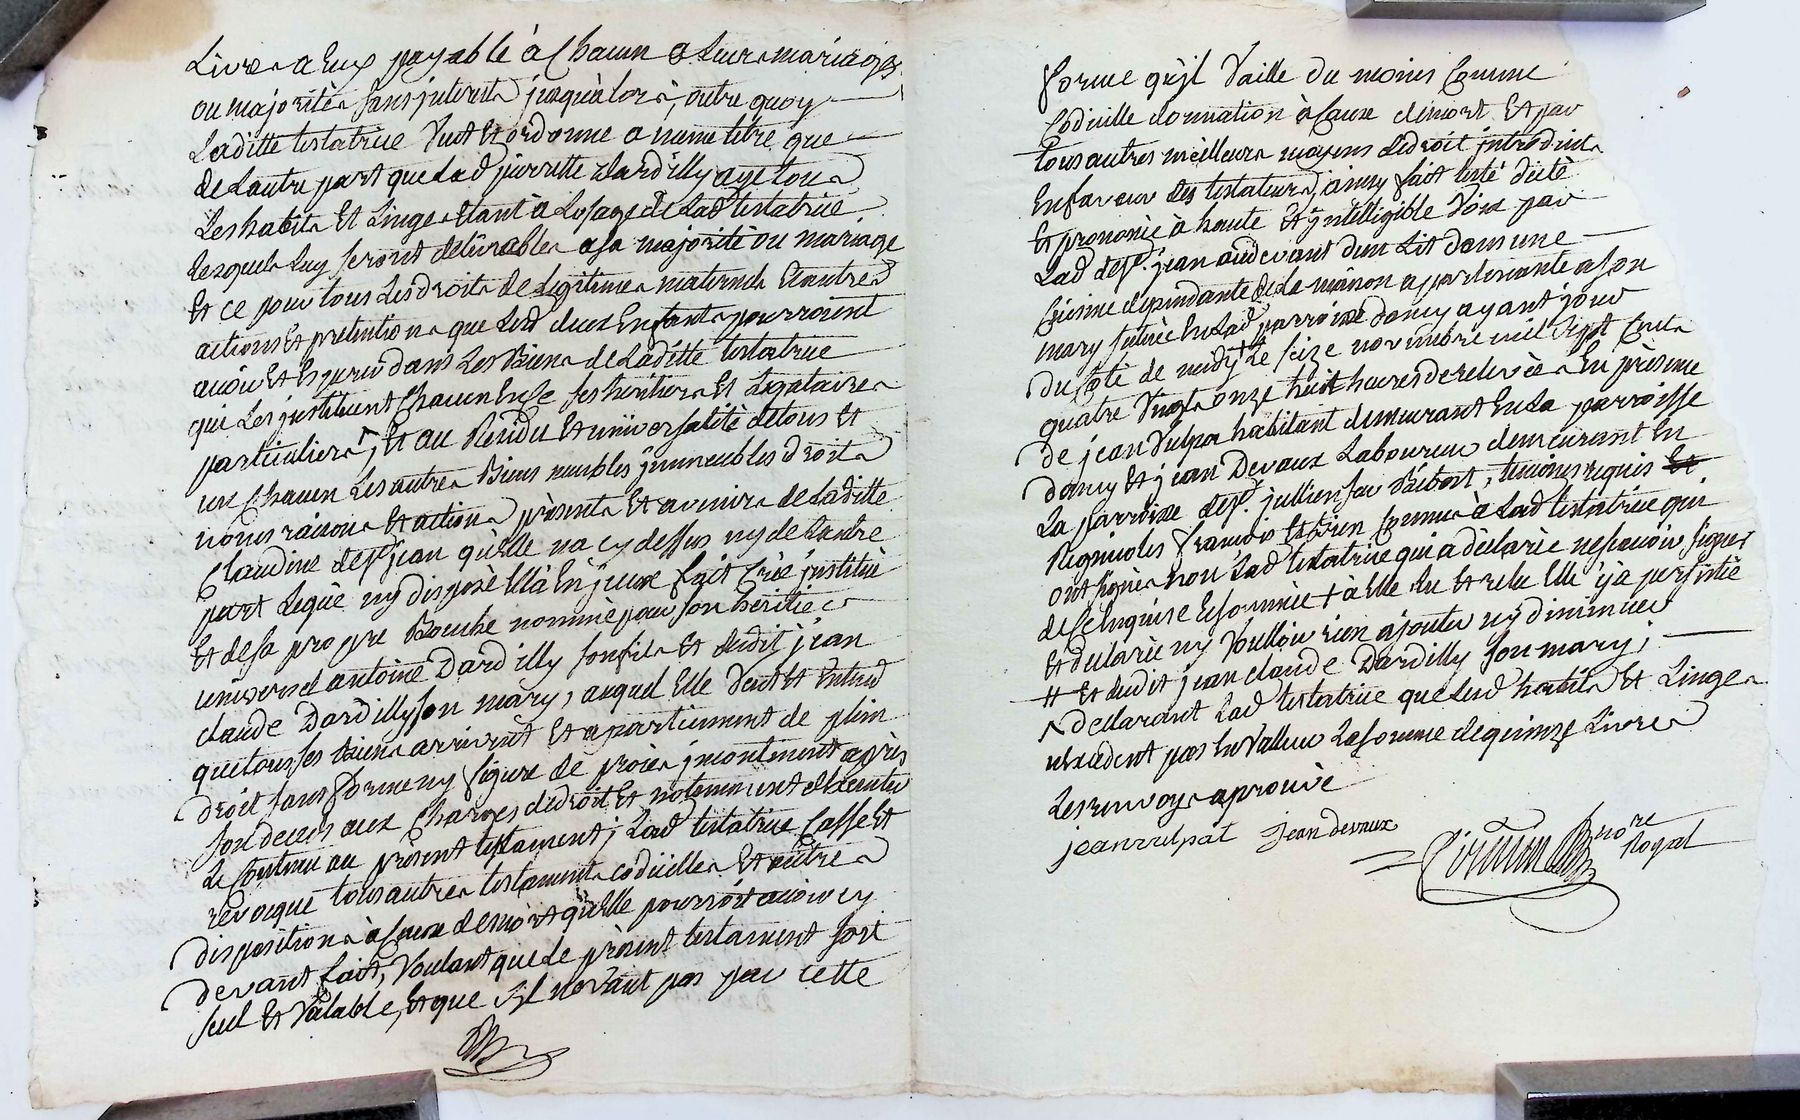 Livres a eux payable à chacun a leurs mariages
ou majorités sans jnterests jusqu'alors, outre quoy
Laditte testatrice Veut Et ordonne a meme titre que
de Lautre part que Lad pierrette Dardilly aye tous
Les habits Et Linges Etant à Lusage de Lad testatrice
Lesquels Luy seront delivrables a sa majorité ou mariage
Et ce pour tous Les droits de Legitimes maternels Et autres
actions Et pretentions que Lesd deux Enfants pourroient
avoir Et Esperer dans Les Biens de Laditte testatrice
qui Les jnstituent chacun En ce ses heritiers Et Legataires
particuliers, Et au Residu Et universalité de tous Et
un chacun Les autres Biens meubles jmmeubles droits
noms raisons Et actions présents Et avenirs de Laditte
Claudine de st jean qu'elle na cy dessus ny de Lautre
part Legué ny disposé Elle à En jceux fait Créé jnstitué
Et de sa propre Bouche nommé pour son héritier
universel antoine Dardilly son fils Et dudit jean
claude Dardilly son mary, auquel Elle veut Et Entend
que tous ses Biens arrivent Et apartiennent de plein
droit sans forme ny figure de procès jncontinent après
son deces aux charges de droit Et notamment dExecuter
Le Contenu au présent testament; Lad testatrice Casse Et
révoque tous autres testaments codicilles Et autres
dispositions à Cause de mort qu'elle pourroit avoir cy
devant fait, Voulant que Le présent testament soit
seul Et Valable, Et que s'jl ne Vaut pas par cette
forme qu'jl Vaille du moins Comme
Codicille donnation à Cause de mort Et par
tous autres meilleurs moyens de droit jntroduits
En faveur des testateurs, ainsy fait testé dicté
Et prononcé à haute Et jntelligible Voix par
Lad de st. jean au devant dun Lit dans une
Cuisine dependante de La maison appartenante a son
mary située En Lad parroisse dancy ayant jour
du Coté de midy Le seize novembre mil sept Cent
quatre Vingt onze huit heures de relevée En présence
de jean Vulpat habitant demeurant En La parroisse
dancy Et jean Devaux Laboureur demeurant En
La parroisse de st. jullien sur Bibost, temoins requis Et
Rignicoles français Et Bien Connus à Lad testatrice qui
ont signés non Lad testatrice qui a déclarée ne scavoir signer
de ce Enquise Et sommée + à Elle Lu Et relu Elle y a persistée
Et déclarée ny Voulloir rien ajouter ny diminuer
# Et dudit jean claude Dardilly son mary;
+ declarant Lad testatrice que Lesd habits Et Linges
n'Excedent pas En Valleur La somme de quinze Livres
Les renvoys aprouvé
jean vulpat jean devaux
nore
Royal